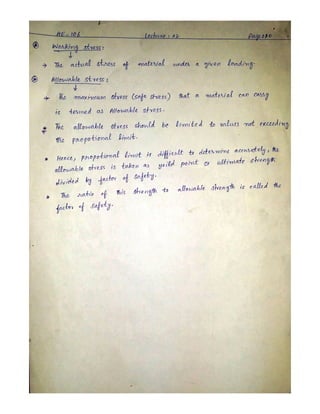 AE-106 Lecture: 02
Working stress:
→ The actual stress of material under a given loading.
Allowable stress:
→ The maximum stress (safe stress) that a material can carry
is termed as Allowable stress.
The allowable stress should be limited to values not exceeding
the propotional limit.
Hence, propotional limit is difficult to determine accurately, the
allowable stress is taken as yeild point or ultimate strength
divided by factor of safety.
The ratio of this strength to allowable strength is called the
factor of safety.